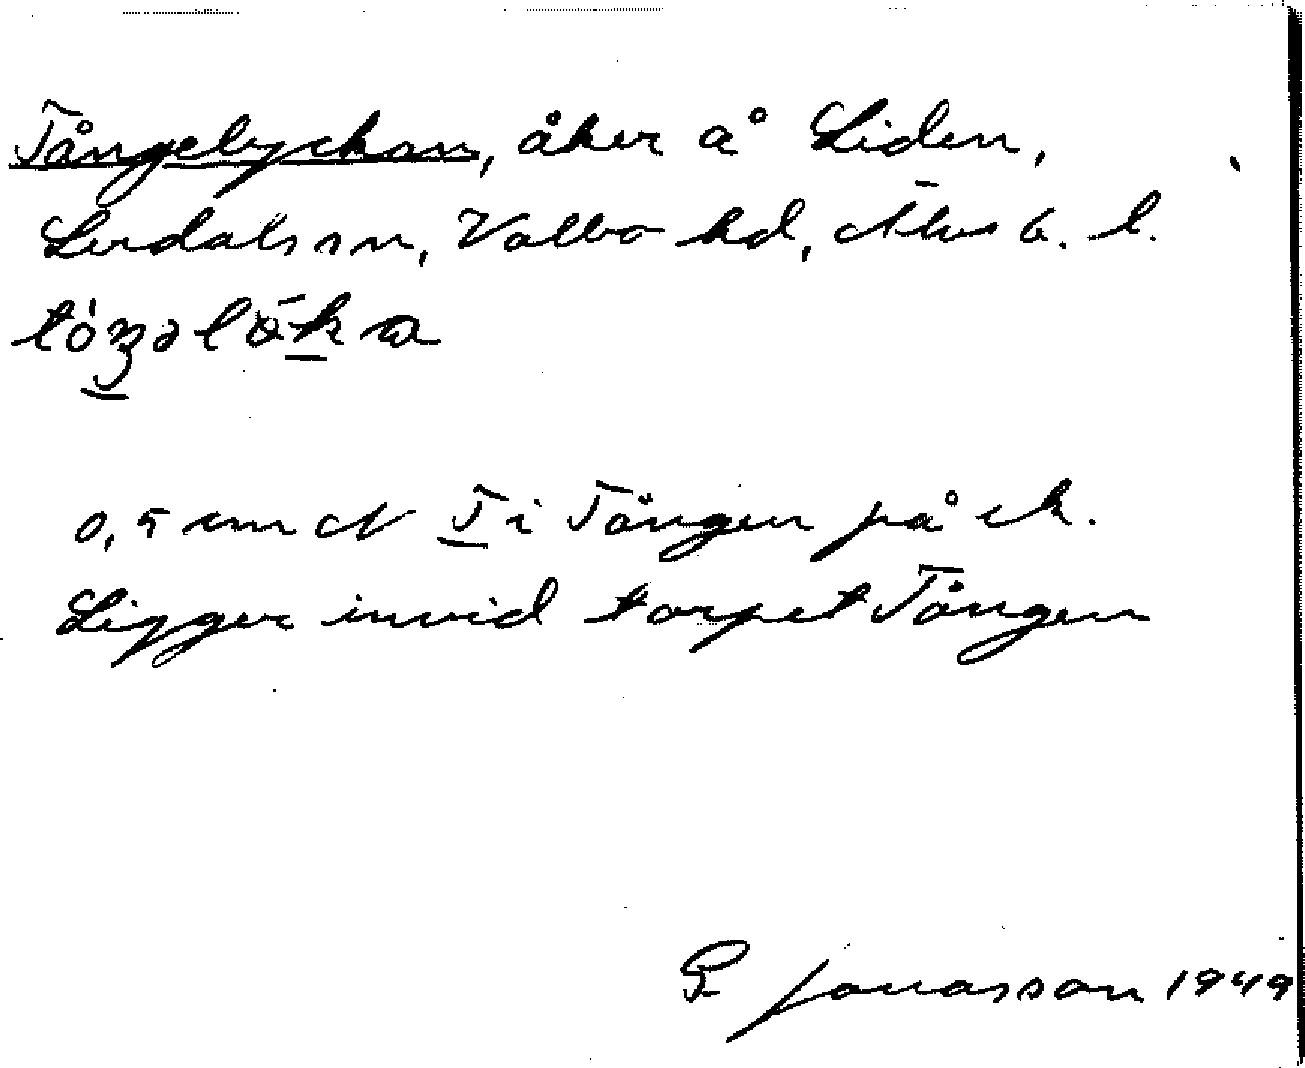 Tångelyckan, åker å Liden,
Lerdals sn, Valbo hd, Älvsb. l.
0,5 cm N T i Tången på ek.
Ligger invid torpet Tången
G Jonasson 1949